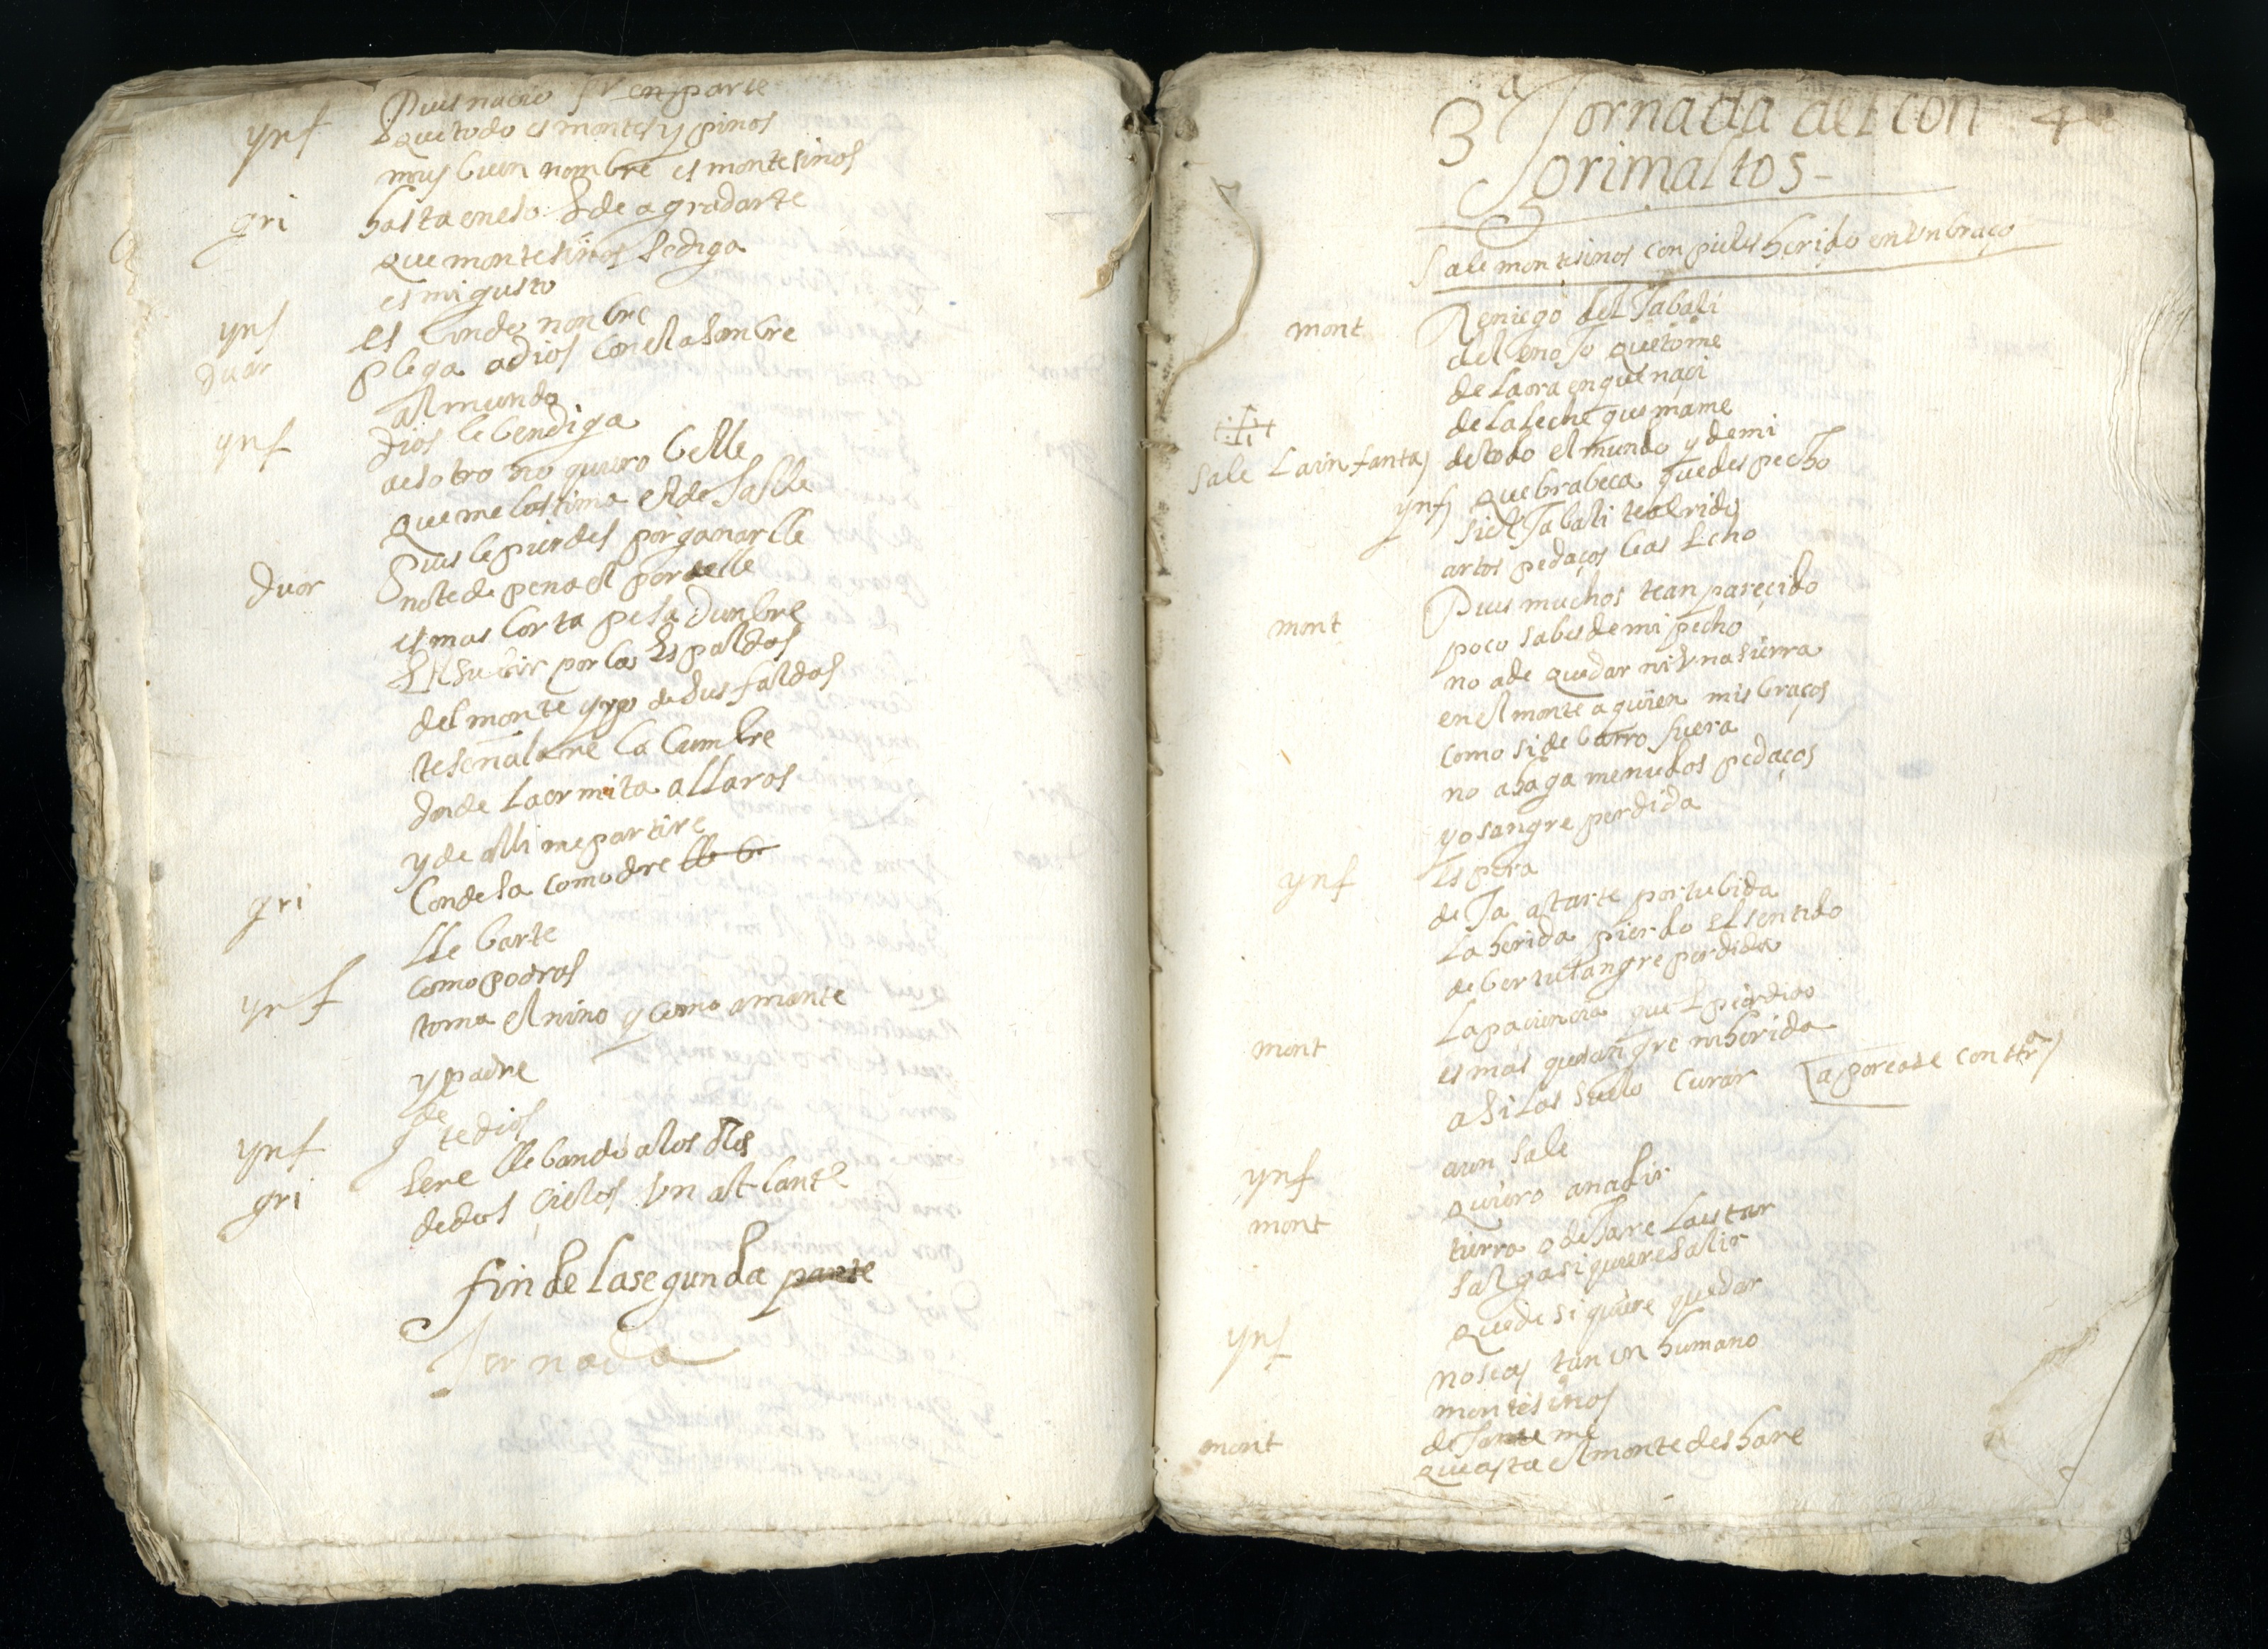 Pues nacio Sr en parte
ynf que todo es montes y pinos
muy buen nombre es montesinos
gri hasta en eso de agradarte
que montesinos se diga
es mi gusto
ynf es lindo nonbre
duar plega a dios con esta honbre
al mundo
ynf Dios le bendiga
aesotro no quiero belle
que me lastima el desalle
Pues le pierdes por ganarlle
duar no te de pena el perdelle
es mas corta pesadunbre
el subir por las espaldas
del monte y yo de sus faldas
te señalare la cumbre
donde la ermita allaras
y de alli me partire
gri Condesa como dre lle be
llebarte
ynf como podras
toma el nino y como amante
y padre
ynf gde te dios
gri sere llebando a los dos
de dos cielos un atlante
fin de la segunda parte
Jornada
3a Jornada del con 4
grimaltos-
Sale montesinos con pieles herido en un braço
mont Reniego del Jabali
del enojo que tome
de la ora en que naci
de la leche que mame
sale La infanta de todo el mundo y de mi
ynf que brabeca que despecho
si el Jabali te a erido
artos pedaços le as echo
mont Pues muchos te an parecido
poco sabes de mi pecho
no a de quedar ni una sierra
en el monte a quien mis braços
como si de barro fuera
no a haga menudos pedaços
yo sangre perdida
ynf espera
deJa atarte por tu bida
la herida pierdo el sentido
de ber tu sangre perdida
mont La paciencia que e perdido
es mas que sangre ni herida
asi las suelo curar (aporcase con tra)
ynf aun sale
mont quiero anadir
tierra o deJare la estar
salga si quiere salir
quede si quiere quedar
ynf no seas tan in humano
montesinos
mont deJame
que asta el monte deshare